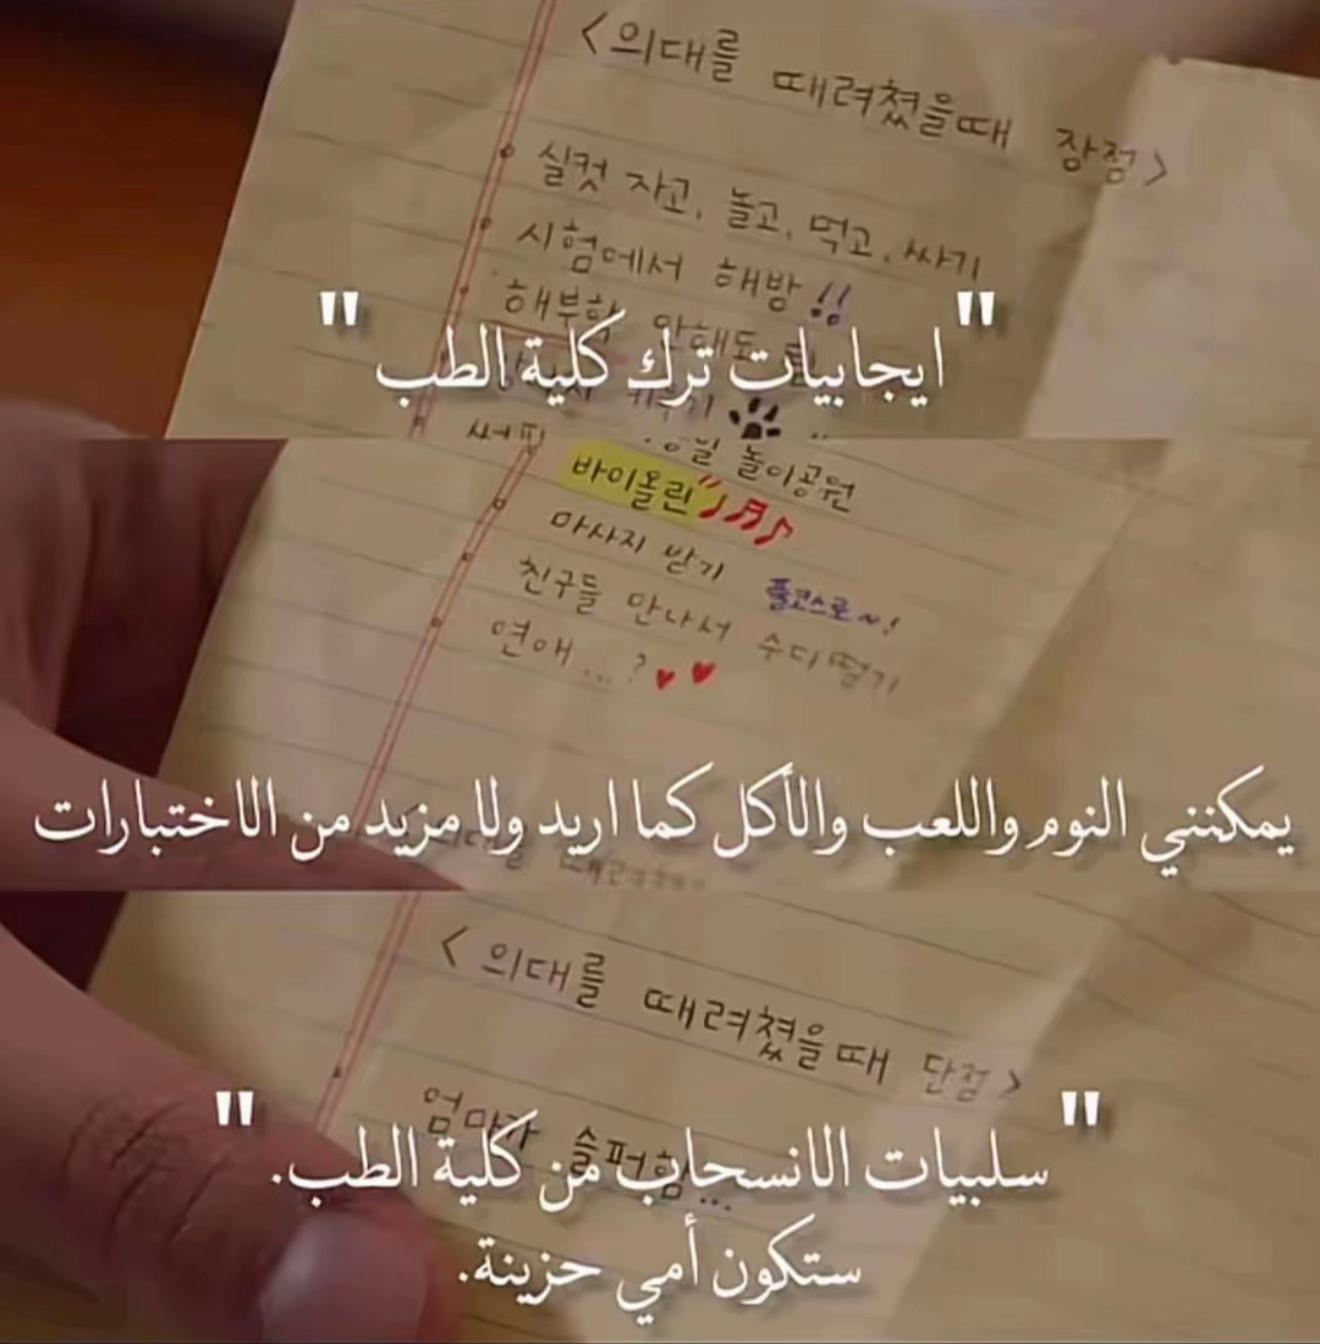 <의대를 때려쳤을때 장점>
실컷 자고, 놀고, 먹고, 싸기
시험에서 해방!!
해부학 안해도 됨
" ايجابيات ترك كلية الطب "
놀이공원
바이올린
마사지 받기 풀코스로~!
친구들 만나서 수다떨기
연애...?
يمكنني النوم واللعب والأكل كما اريد ولا مزيد من الاختبارات
의대를 때려쳤을때
< 의대를 때려쳤을때 단점>
엄마가 슬퍼함...
" سلبيات الانسحاب من كلية الطب. "
ستكون أمي حزينة.